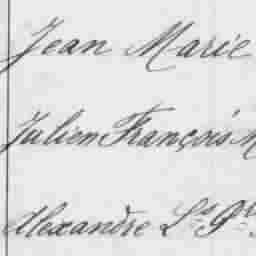 Jean Marie
Julien François M
Alexandre Ls